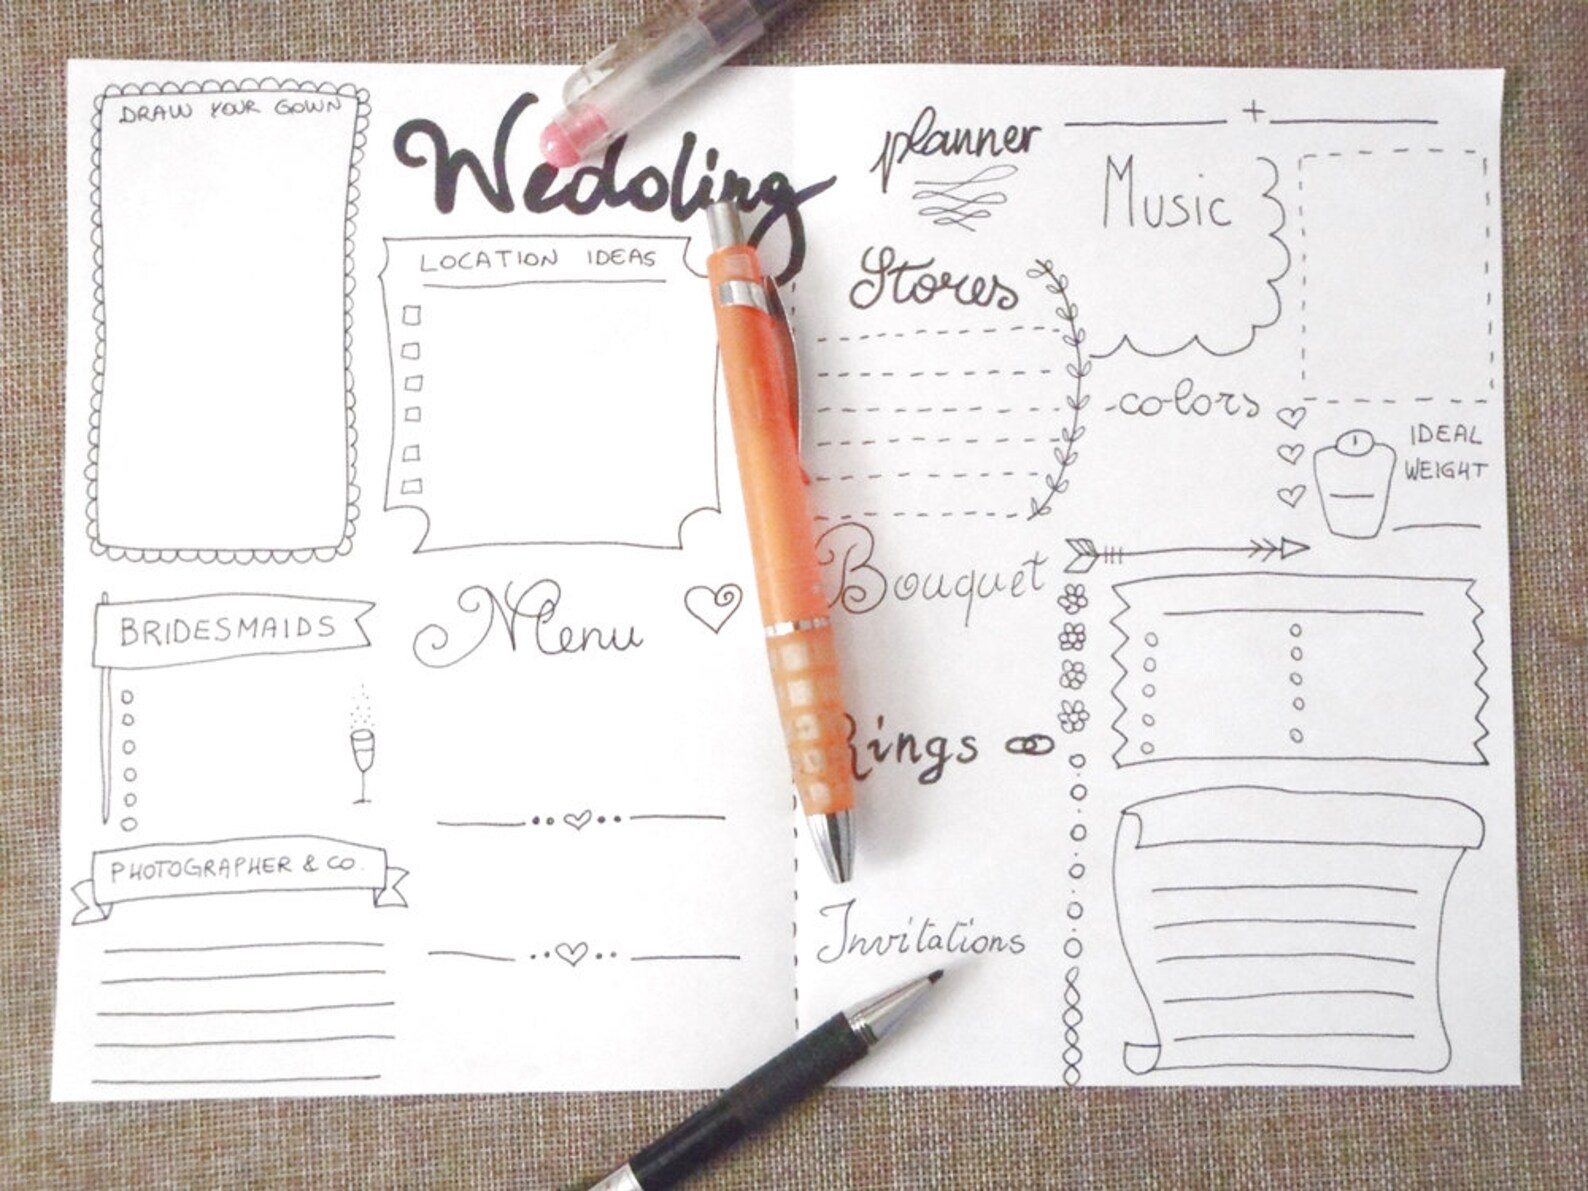 DRAW YOUR GOWN
Wedding
planner
+
LOCATION IDEAS
Stores
Music
-colors
IDEAL
WEIGHT
BRIDESMAIDS
Menu
Bouquet
Rings
PHOTOGRAPHER & CO.
Invitations